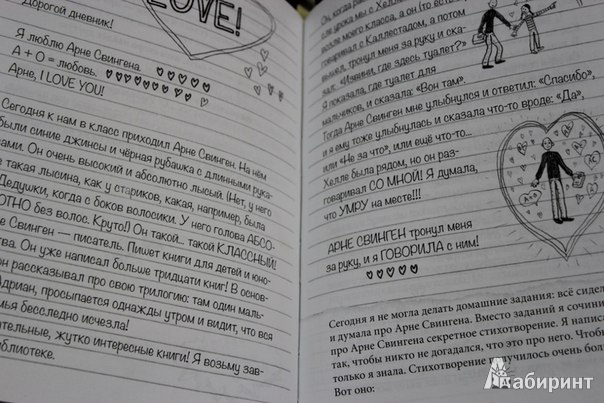 Дорогой дневник!
LOVE!
Я люблю Арне Свингена.
А + О = любовь.
Арне, I LOVE YOU!
Сегодня к нам в класс приходил Арне Свинген. На нём
были синие джинсы и чёрная рубашка с длинными рука-
вами. Он очень высокий и абсолютно лысый. (Нет, у него
не такая лысина, как у стариков, какая, например, была
Дедушки, когда с боков волосики. У него голова АБСО-
ЛЮТНО без волос. Круто!) Он такой... такой КЛАССНЫЙ!
Арне Свинген — писатель. Пишет книги для детей и юно-
шества. Он уже написал больше тридцати книг! В основ-
ном рассказывал про свою трилогию: там один маль-
чик, Адриан, просыпается однажды утром и видит, что вся
семья бесследно исчезла!
жутко интересные книги! Я возьму зав-
библиотеке.
Он, когда
после урока мы с Хелле
возле моего класса, а он (то есть
говаривал с Каллестадом, а потом
вышел, тронул меня за руку и ска-
зал: «Извини, где здесь туалет?»
Я показала, где туалет для
мальчиков, и сказала: «Вон там».
Тогда Арне Свинген мне улыбнулся и ответил: «Спасибо»,
и я ему тоже улыбнулась и сказала что-то вроде: «Да»,
или «Не за что», или ещё что-то...
Хелле была рядом, но он раз-
говаривал СО МНОЙ! Я думала,
что УМРУ на месте!!!
A+O
АРНЕ СВИНГЕН тронул меня
за руку, и я ГОВОРИЛА с ним!
Сегодня я не могла делать домашние задания: всё сидела
и думала про Арне Свингена. Вместо заданий я сочинила
про Арне Свингена секретное стихотворение. Я написала
так, чтобы никто не догадался, что это про него. Чтобы
только я знала. Стихотворение получилось очень
Вот оно:
Лабиринт